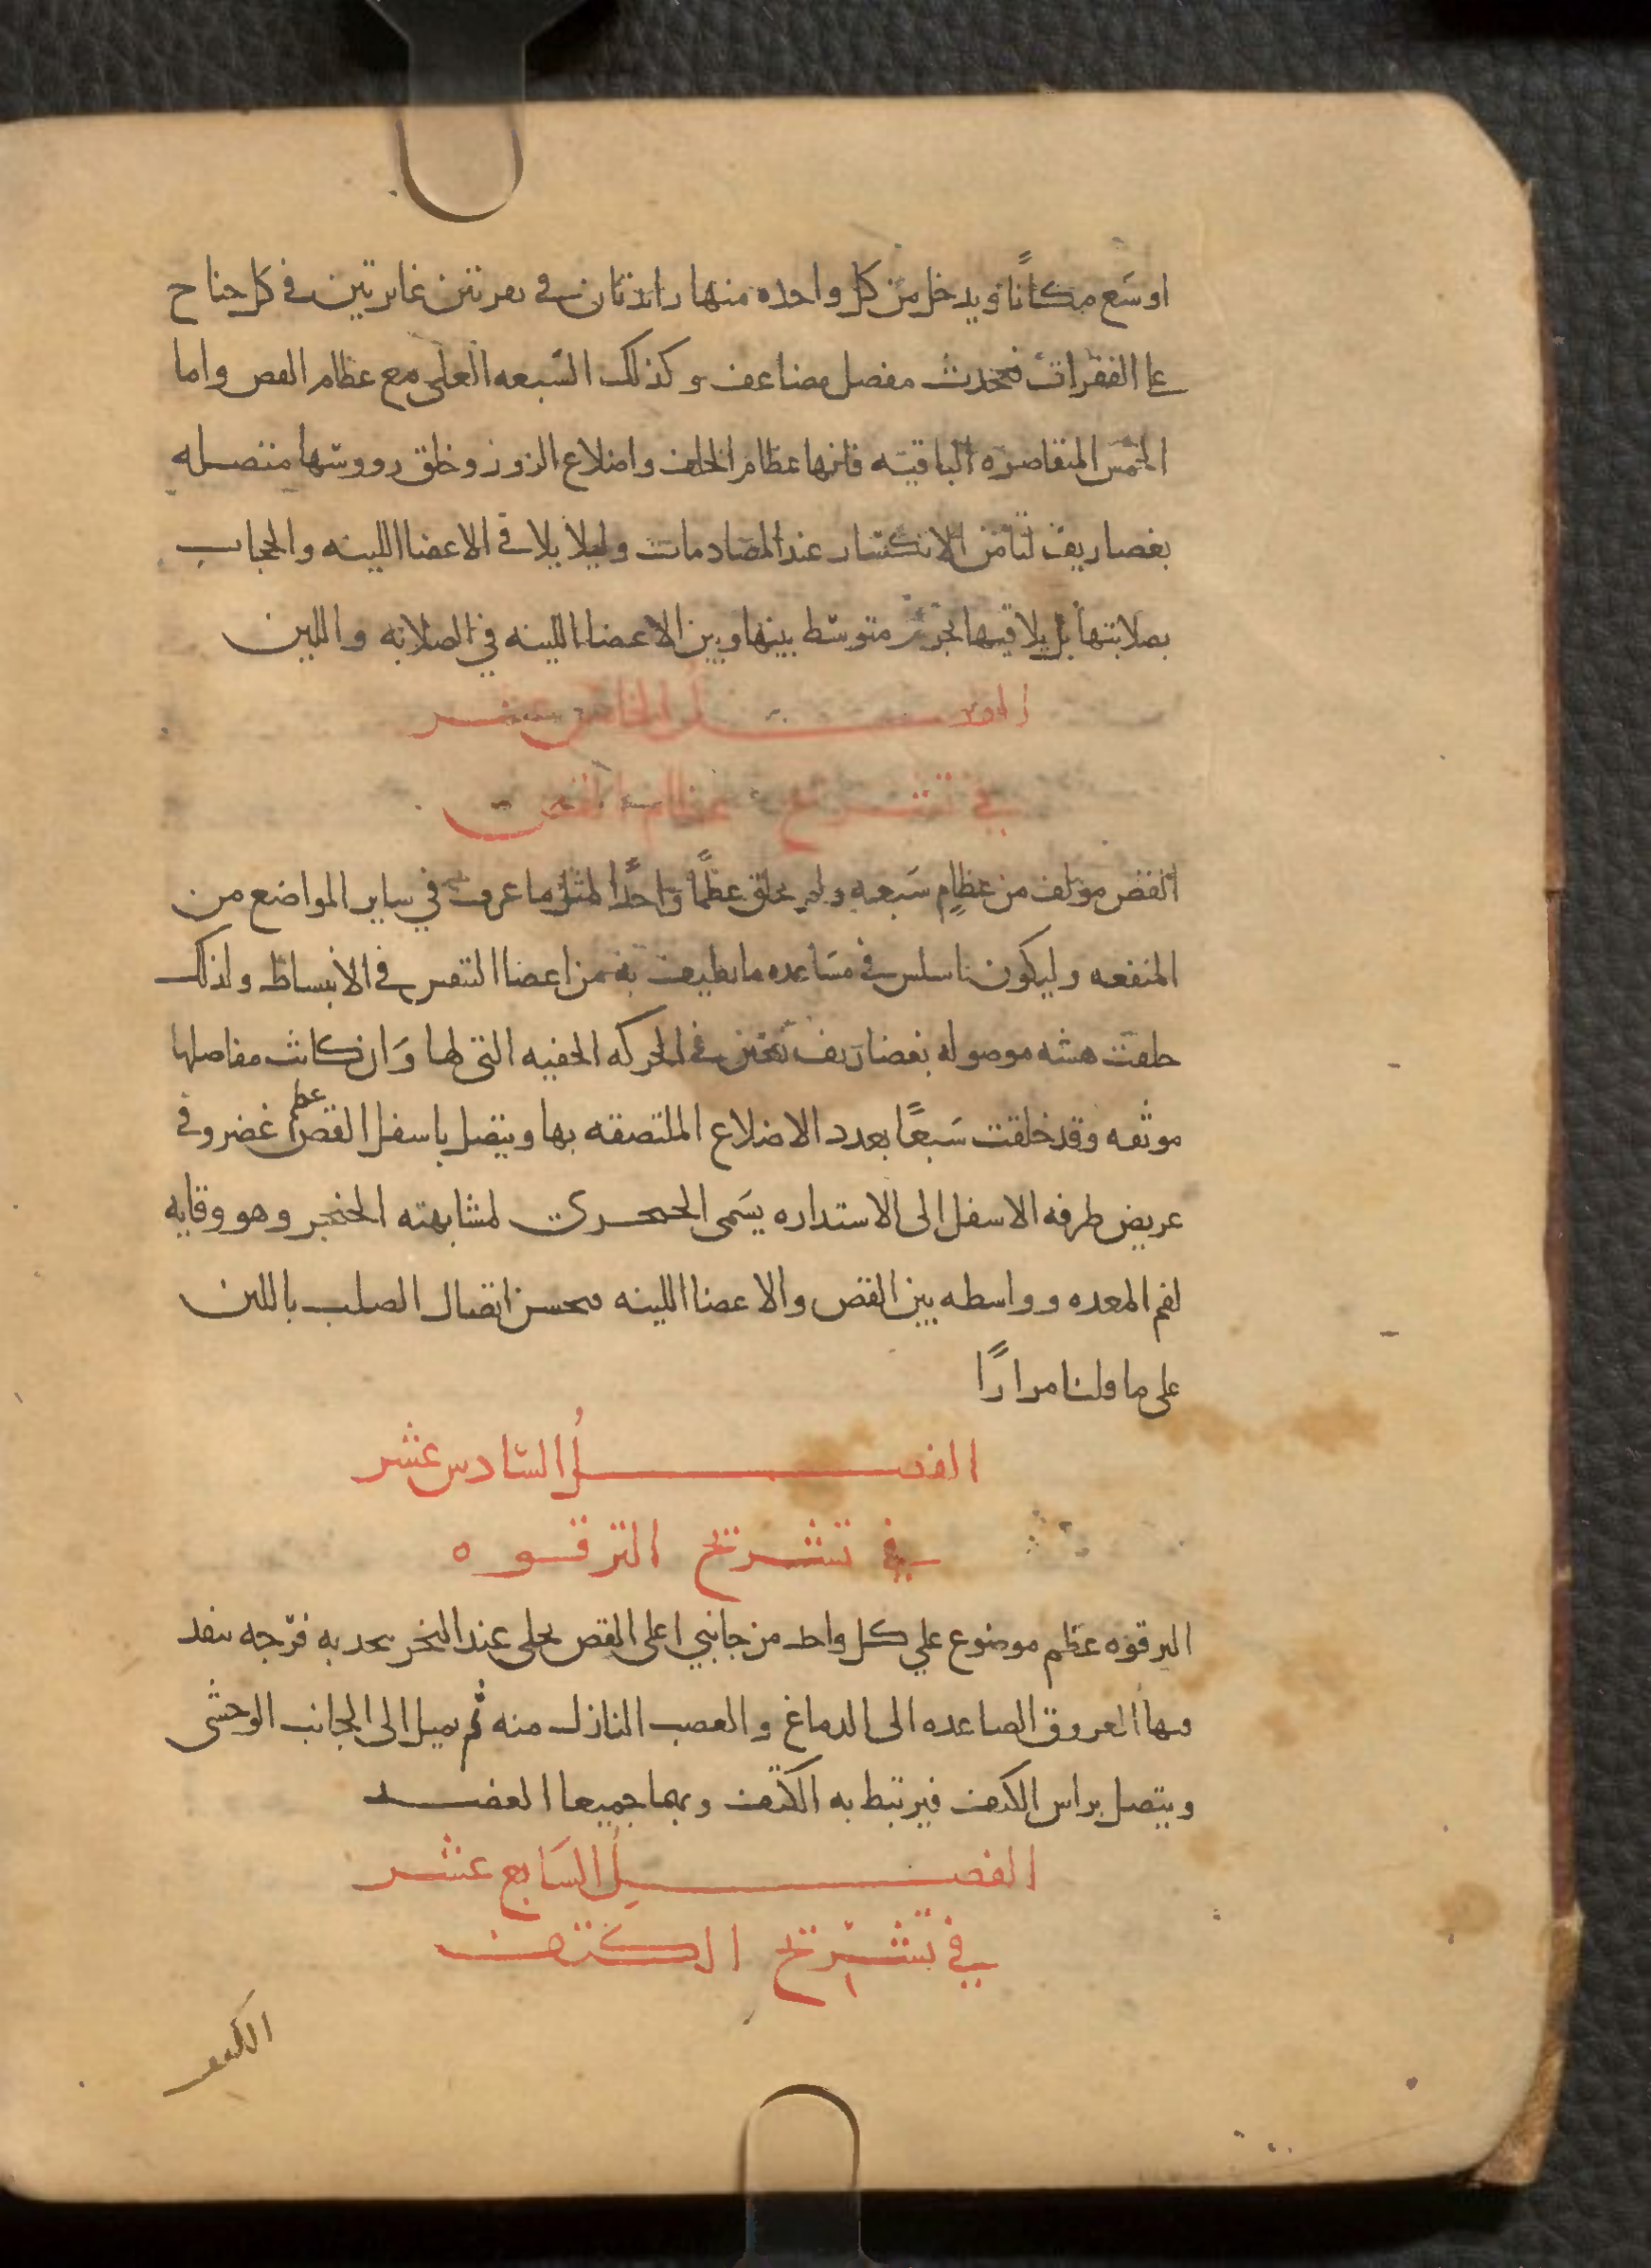 اوسَع مكانًا ويدخل من كل واحده منها زايدتان في نقرتين غايرتين في كل جناح
علي الفقرات فيحدث مفصل مضاعف وكذلك السّبعه العلي مع عظام القص واما
الخمس المتقاصره الباقيه فانها عظام الخلف واضلاع الزور وخلق رووسها متصله
بغضاريف لتامن الانكسَار عند المصَادمات وليلا يلاقي الاعضا اللينه والحجاب
بصلابتها بل يلاقيها بجرم متوسّط بينها وبين الاعضا اللينه في الصلابه واللين
الفصل الخامس عشر
في تشريح عظام القص
القص مولف من عظامٍ سَبعه ولم يخلق عظمًا واحدًا لمثل ما عرف في ساير المواضع من
المنفعه وليكون اسلس في مسَاعده ما يطيف به من اعضا التنفس في الانبساط ولذلك
خلقت هشه موصوله بغضاريف تعين في الحركه الخفيه التي لها وَان كانت مفاصلها
موثقه وقد خلقت سَبعًا بعدد الاضلاع الملتصقه بها ويتصل باسفل القص عظم غضروفي
عريض طرفه الاسفل الى الاستداره يسَمى الخنجري لمشابهته الخنجر وهو وقايه
لفم المعده وواسطه بين القص والاعضا اللينه فيحسن اتصال الصلب باللين
على ما قلنا مرارًا
الفصلُ السّادس عشر
في تشريح الترقوه
الترقوه عظم موضوع علي كل واحد من جانبي اعلى القص يخلى عند النحر بتحدبه فرّجه تنفذ
فيها العروق الصاعده الى الدماغ والعصب النازل منه ثم يميل الى الجانب الوحشى
ويتصل براس الكتف فيرتبط به الكتف وبهما جميعا العضد
الفصلُ السَابع عشر
في تشرّيح الكتف
الكتف